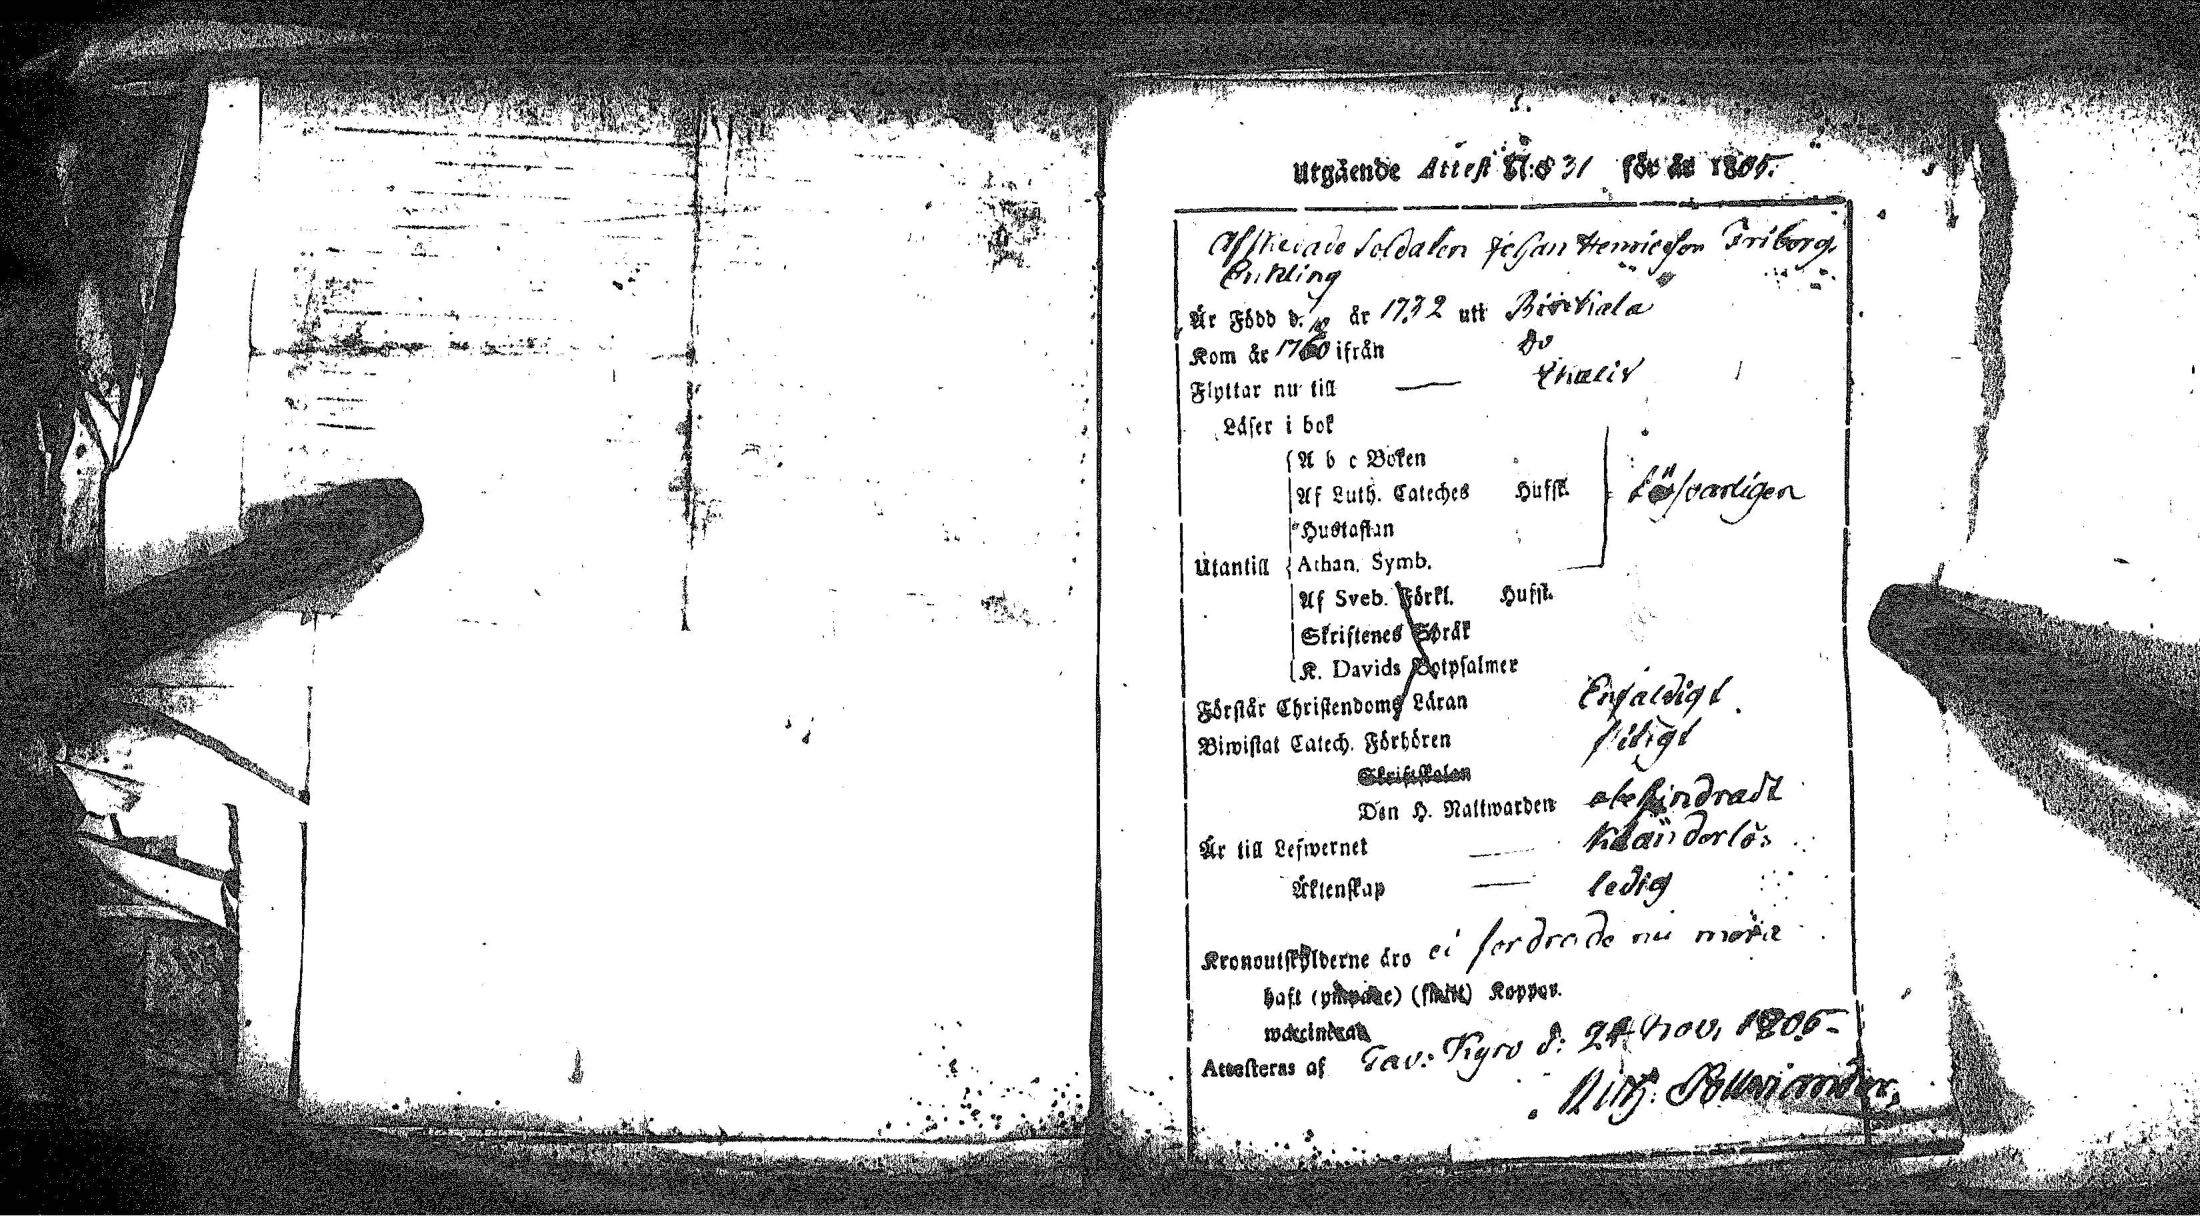 Utgående Attest N:o 31 för år 1805.
Afskedade Soldaten Johan Henricsson Friborg,
Enkling
Är Född d. år 1732 uti Birckala
Kom år 1760 ifrån do
Flyttar nu till —
Läser i bok
A b c Boken
Af Luth. Cateches Hufst.
Hustaflan
Utantill Athan. Symb.
Af Sveb. Förkl. Hufst.
Skriftenes Språk
K. Davids Botpsalmer
Förstår Christendoms Läran Enfaldigt
Biwistat Catech. Förhören flitigt
Skriftskolan
Den H. Nattwarden obehindradt
Är till Lefwernet — Klanderlös
Äktenskap — ledig
Kronoutskylderne äro ei fordrade nu mera
haft (ympade) Koppor.
waccinerad
Attesteras af Tav: Kyro d: 24 Nov. 1805